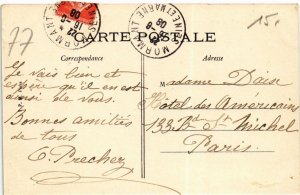 77
15.-
CARTE POSTALE
Correspondance
Adresse
MORMANT
SEINE ET MARNE
Je vais bien et
espère qu'il en est
ainsi de vous.
Bonnes amitiés
de tous
C. Prechey
Madame Daix
Hôtel des Américains
133 Bt St Michel
Paris.